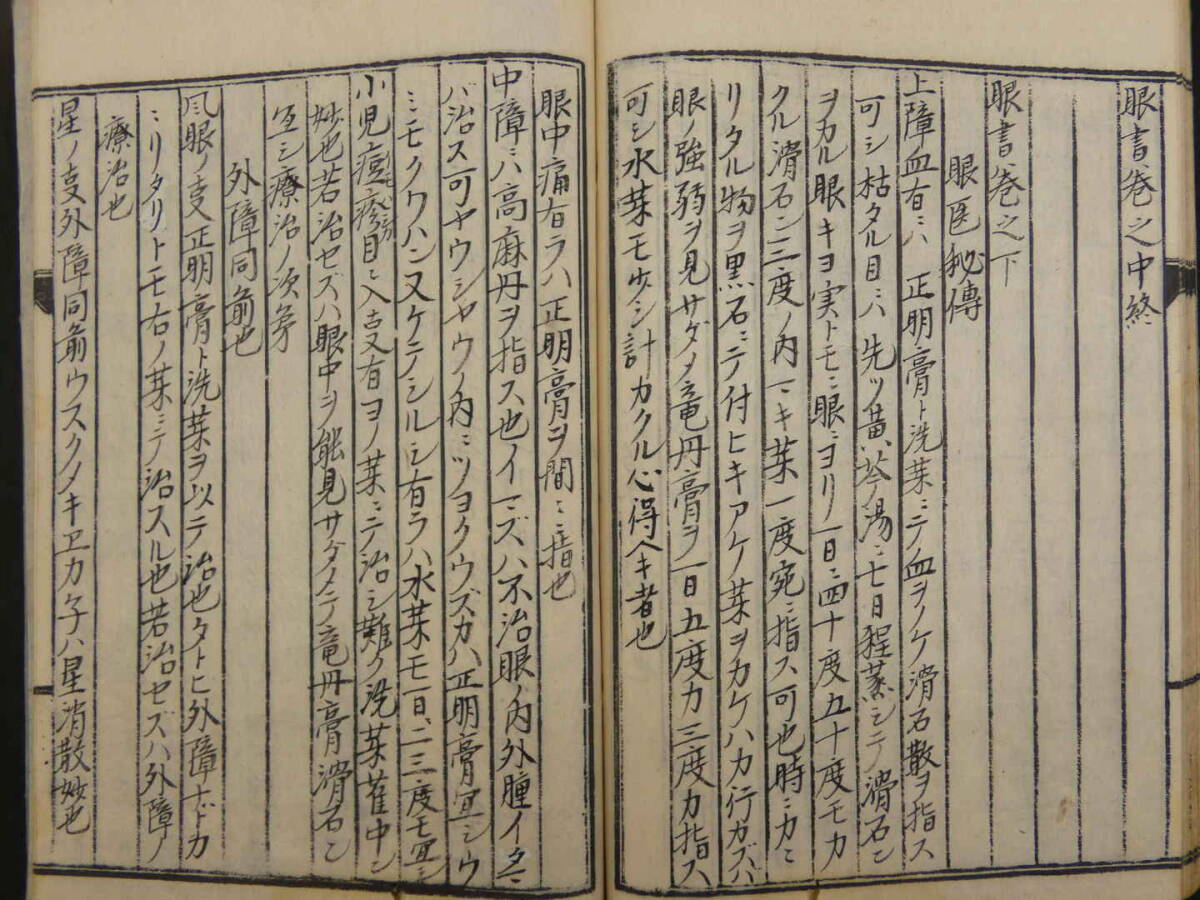 眼書巻之中終
眼書巻之下
眼医秘傳
上障ノ血有ニハ 正明膏ト洗薬ニテ血ヲノケ滑石散ヲ指ス
可シ枯タル目ニハ先ツ黄芩ノ湯ニ七日程蒸シテ滑石ニ
ヲカル眼キヨ実トモニ眼ニヨリ一日ニ四十度五十度モカ
クル滑石ニ三度ノ内マキ薬一度宛ニ指ス可也時ニカニ
リタル物ヲ黒石ニテ付ヒキアケ薬ヲカケハカ行カズハ
眼ノ強弱ヲ見サダメ竜丹膏ヲ一日五度カ三度カ指ス
可シ水薬モ少シ計カクル心得ヘキ者也
眼中痛有ラハ正明膏ヲ間ニ指也
中障ニハ高麻丹ヲ指ス也イマズハ不治眼ノ内外腫イタミ
バ治ス可ヤウシヤウノ内ニツヨクウズカハ正明膏宜シウ
ミモクワハン又ケテノシルシ有ラハ水薬モ一日ニ二三度モ宜シ
小児痘疹目ニ入支有ヨノ薬ニテ治シ難ク洗薬雀中ニ
妙也若治セズハ眼中ヲ能見サダメテ竜丹膏滑石ニ
宜シ療治ノ次㐧
外障同前也
風眼ノ支正明膏ト洗薬ヲ以テ治也タトヒ外障ナドカ
ミリタリトモ右ノ薬ニテ治スル也若治セズハ外障ノ
療治也
星ノ支外障同前ウスクタキヱカ子ハ星消散妙也